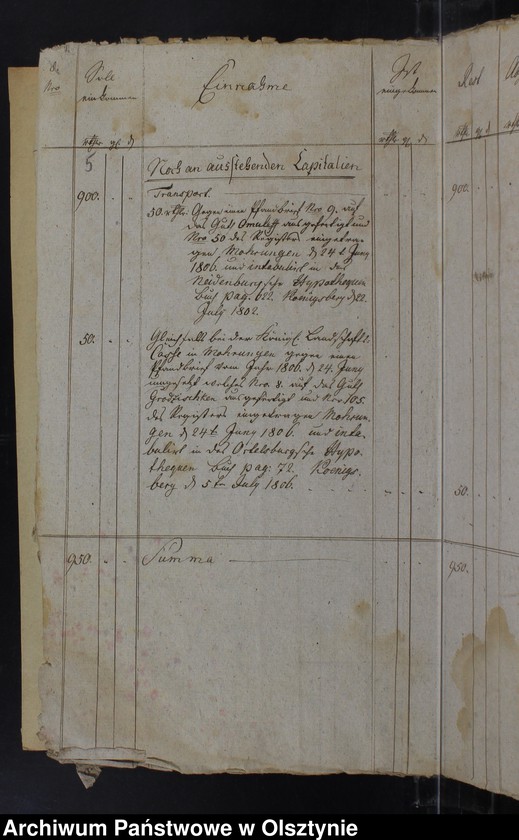 No
Soll
einkommen
Einnahme
Ist
eingekommen
Rest
rthr gr d
rthr gr d
rth g d
5
Noch an ausstehenden Capitalien
900. Transport. 900.
50 rthr. Gegen einen Pfandbrief Nro 9. auf
das Gutt Omuleff ausgefertigt und
Nro 50 des Registers eingetra-
gen Mohrungen d 24 t Juny
1806. und intabulirt in das
Neidenburgsche Hypothequen
Buch pag. 622. Koenigsberg d 22.
July 1802.
50. Gleichfalls bei der Königl. Landschafts
Casse in Mohrungen gegen einen
Pfandbrief vom Jahr 1806. d. 24. Juny
welches Nro. 8. auf das Gutt
ausgefertigt und Nro 105.
des Registers eingetragen Mohrun-
gen d 24t Juny 1806. und inta-
bulirt in das Ortelsburgsche Hypo-
thequen Buch pag: 72. Koenigs-
berg d 5t July 1806. 50.
950. Summa 950.
Archiwum Państwowe w Olsztynie